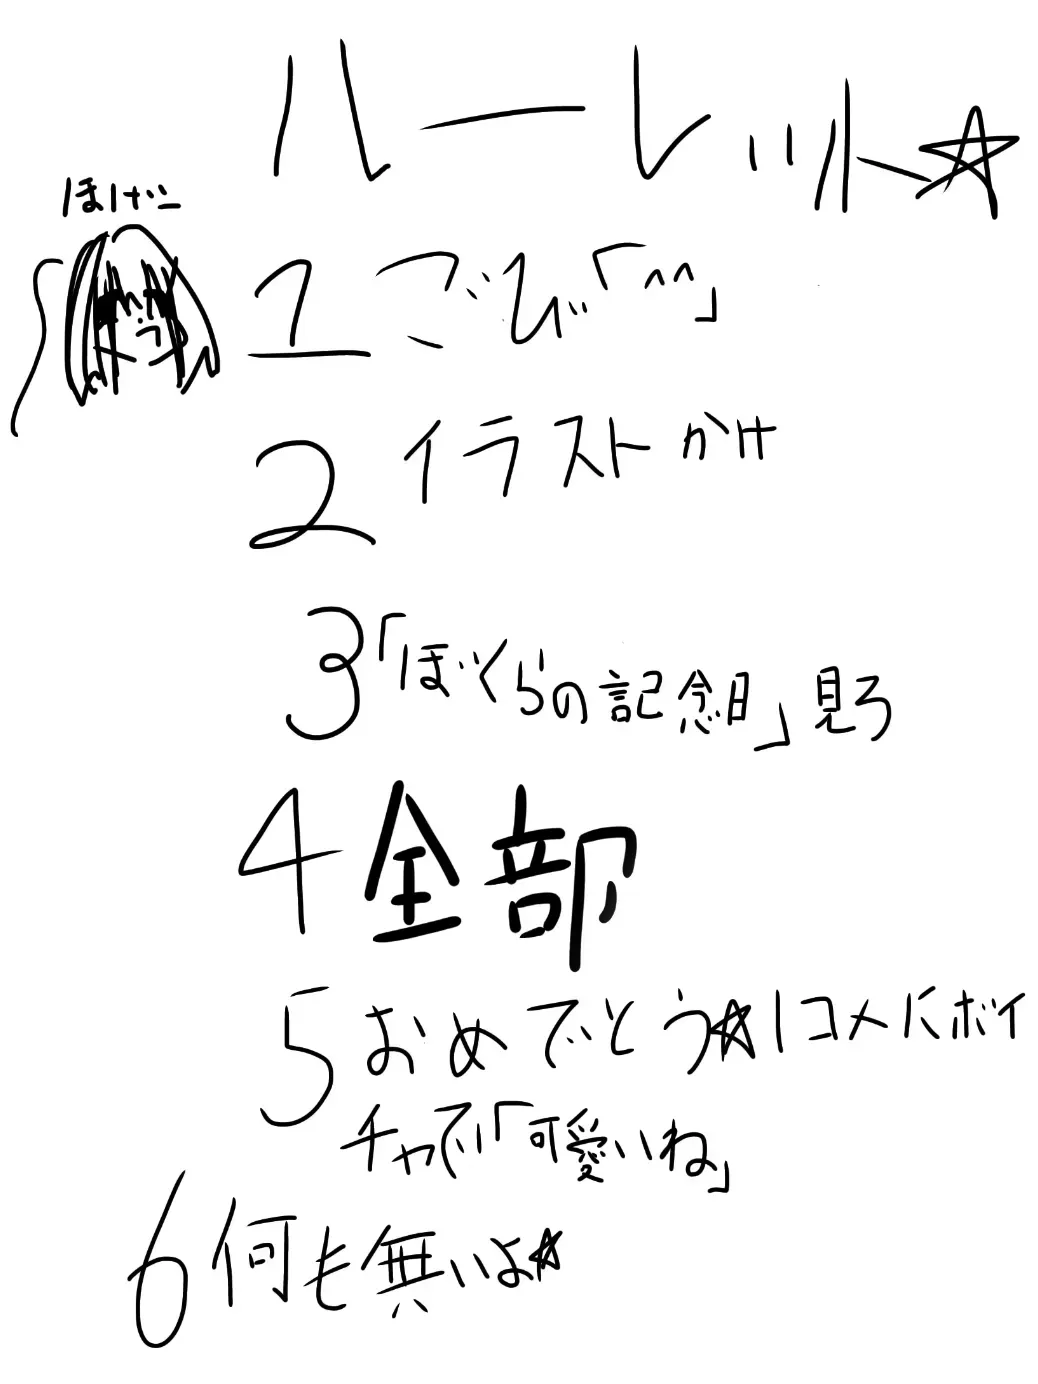 ルーレット☆
ほけに
1 ごび「^^」
2 イラストかけ
3「ぼくらの記念日」見ろ
4 全部
5 おめでとう☆1コメにボイ
チャで「可愛いね」
6 何も無いよ☆